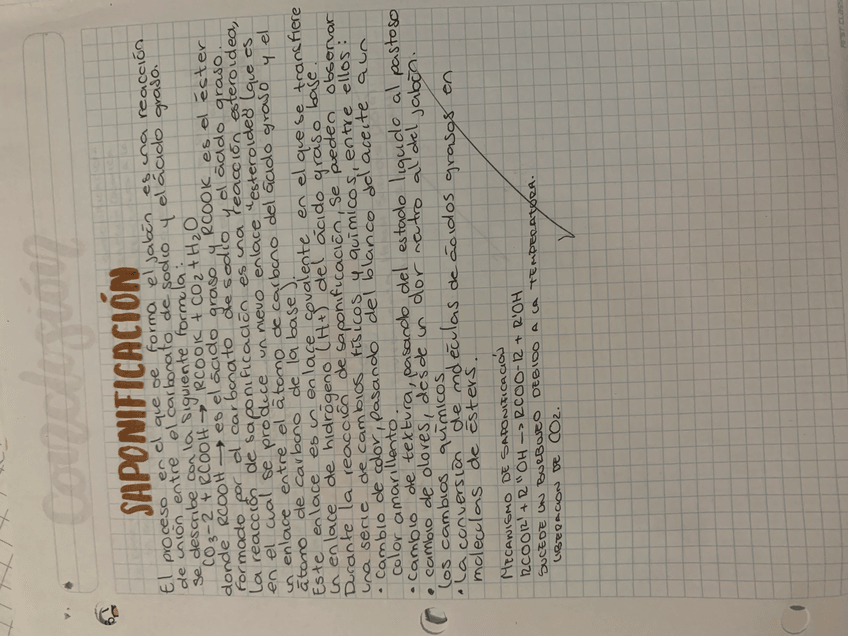 SAPONIFICACIÓN
El proceso en el que se forma el jabón es una reacción
de unión entre el carbonato de sodio y el ácido graso.
se describe con la siguiente formula:
CO3-2 + RCOOH → RCOOK + CO2 + H2O
donde RCOOH → es el ácido graso y RCOOK es el éster
formado por el carbonato de sodio y el ácido graso.
La reacción de saponificación es una reacción esteroidea,
en el cual se produce un nuevo enlace "esteroideo" (que es
un enlace entre el átomo de carbono del ácido graso y el
átomo de carbono de la base).
Este enlace es un enlace covalente en el que se transfiere
un enlace de hidrógeno (H+) del ácido graso base.
Durante la reacción de saponificación, se pueden observar
una serie de cambios físicos y químicos, entre ellos:
• Cambio de color, pasando del blanco del aceite a un
color amarillento.
• Cambio de textura, pasando del estado líquido al pastoso
• cambio de olores, desde un olor neutro al del jabón.
Los cambios químicos
• La conversión de moléculas de ácidos grasos en
moléculas de ésters.
MECANISMO DE SAPONIFICACIÓN
RCOOR' + R''OH → RCOO-R + R'OH
SUCEDE UN BURBUJEO DEBIDO A LA TEMPERATURA.
LIBERACION DE CO2.